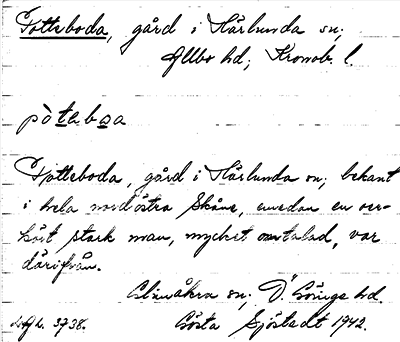 Potteboda, gård i Härlunda sn;
Allbo hd; Kronob. l.
pòtabɔa
Potteboda, gård i Härlunda sn; bekant
i hela nordöstra Skåne, emedan en oer-
hört stark man, mycket omtalad, var
därifrån.
Glimåkra sn; Ö. Göinge hd.
3738. Gösta Sjöstedt 1942.